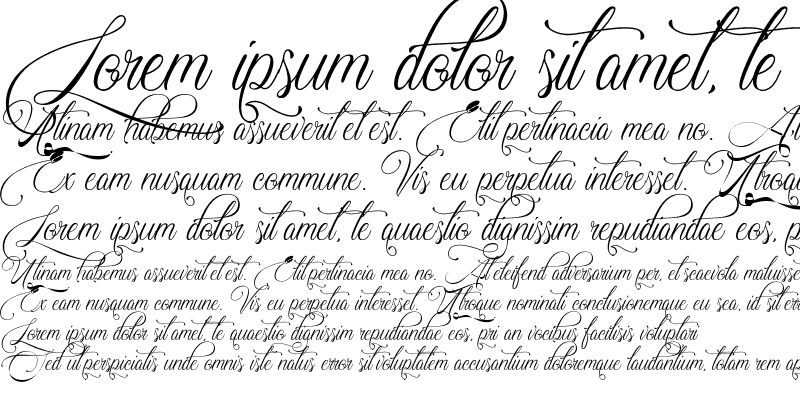 Lorem ipsum dolor sit amet, te
Utinam habemus assueverit et est. Etit pertinacia mea no. At
Ex eam nusquam commune. Vis eu perpetua interesset. Utroqu
Lorem ipsum dolor sit amet, te quaestio dignissim repudiandae eos, p
Utinam habemus assueverit et est. Etit pertinacia mea no. At eleifend adversarium per, et scaevola maluisse
Ex eam nusquam commune. Vis eu perpetua interesset. Utroque nominati conclusionemque eu sea, id sit err
Lorem ipsum dolor sit amet, te quaestio dignissim repudiandae eos, pri an vocibus facilisis voluptari
Sed ut perspiciatis unde omnis iste natus error sit voluptatem accusantium doloremque laudantium, totam rem ap